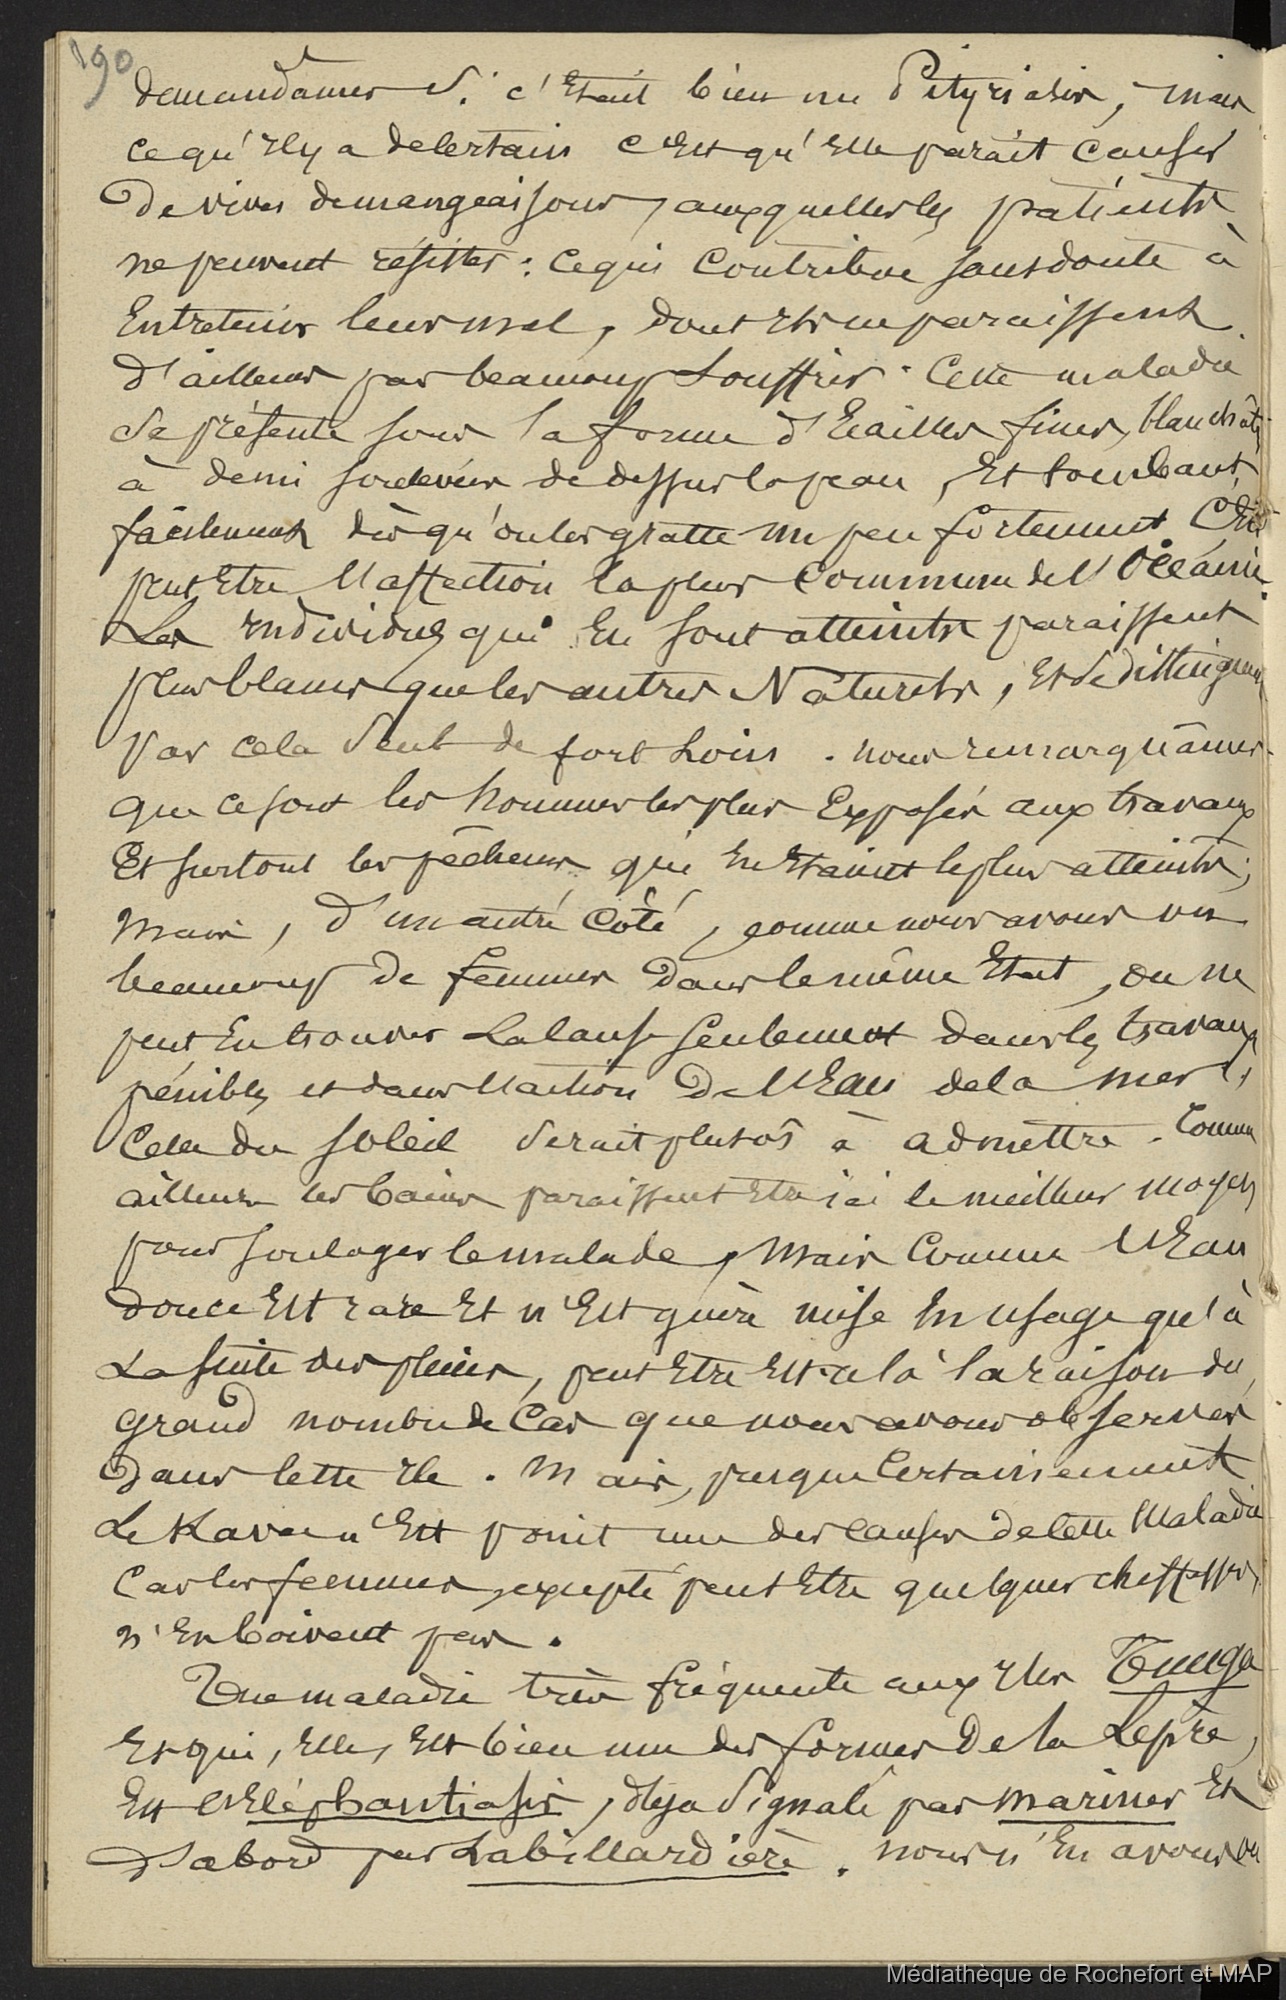 190
demandâmes si c'était bien un Pityriasis, mais
ce qu'il y a de certain c'est qu'elle paraît causer
de vives demangeaisons, auxquelles les patients
ne peuvent résister : ce qui contribue sans doute à
entretenir leur mal, dont ils ne paraissent
d'ailleurs pas beaucoup souffrir. Cette maladie
se présente sous la forme d'écailles fines, blanchâtres
à demi soulevées de dessus la peau, et tombant
facilement dès qu'on les gratte un peu fortement. C'est
peut être l'affection la plus commune de l'Océanie.
Les individus qui en sont atteints paraissent
plus blancs que les autres Naturels, et se distinguent
par cela seul de fort loin. nous remarquâmes
que ce sont les hommes les plus exposés aux travaux
et surtout les pêcheurs qui en étaient le plus atteints ;
mais, d'un autre côté, comme nous avons vu
beaucoup de femmes dans le même état, on ne
peut en trouver la cause seulement dans les travaux
pénibles et dans l'action de l'eau de la mer ;
celle du soleil serait plutôt à admettre. Comme
ailleurs les bains paraissent être ici le meilleur moyen
pour soulager le malade, mais comme l'eau
douce est rare et n'est guère mise en usage qu'à
la suite des pluies, peut être est-ce là la raison du
grand nombre de cas que nous avons observés
dans cette île. Mais, presque certainement
le Kava n'est point une des causes de cette maladie
car les femmes, excepté peut être quelques cheffesses,
n'en boivent pas.
Une maladie très fréquente aux îles Tunga
et qui, elle, est bien une des formes de la Lèpre,
est l'Eléphantiasis, déja signalé par mariner et
d'abord par Labillardière. nous n'en avons vu
Médiathèque de Rochefort et MAP